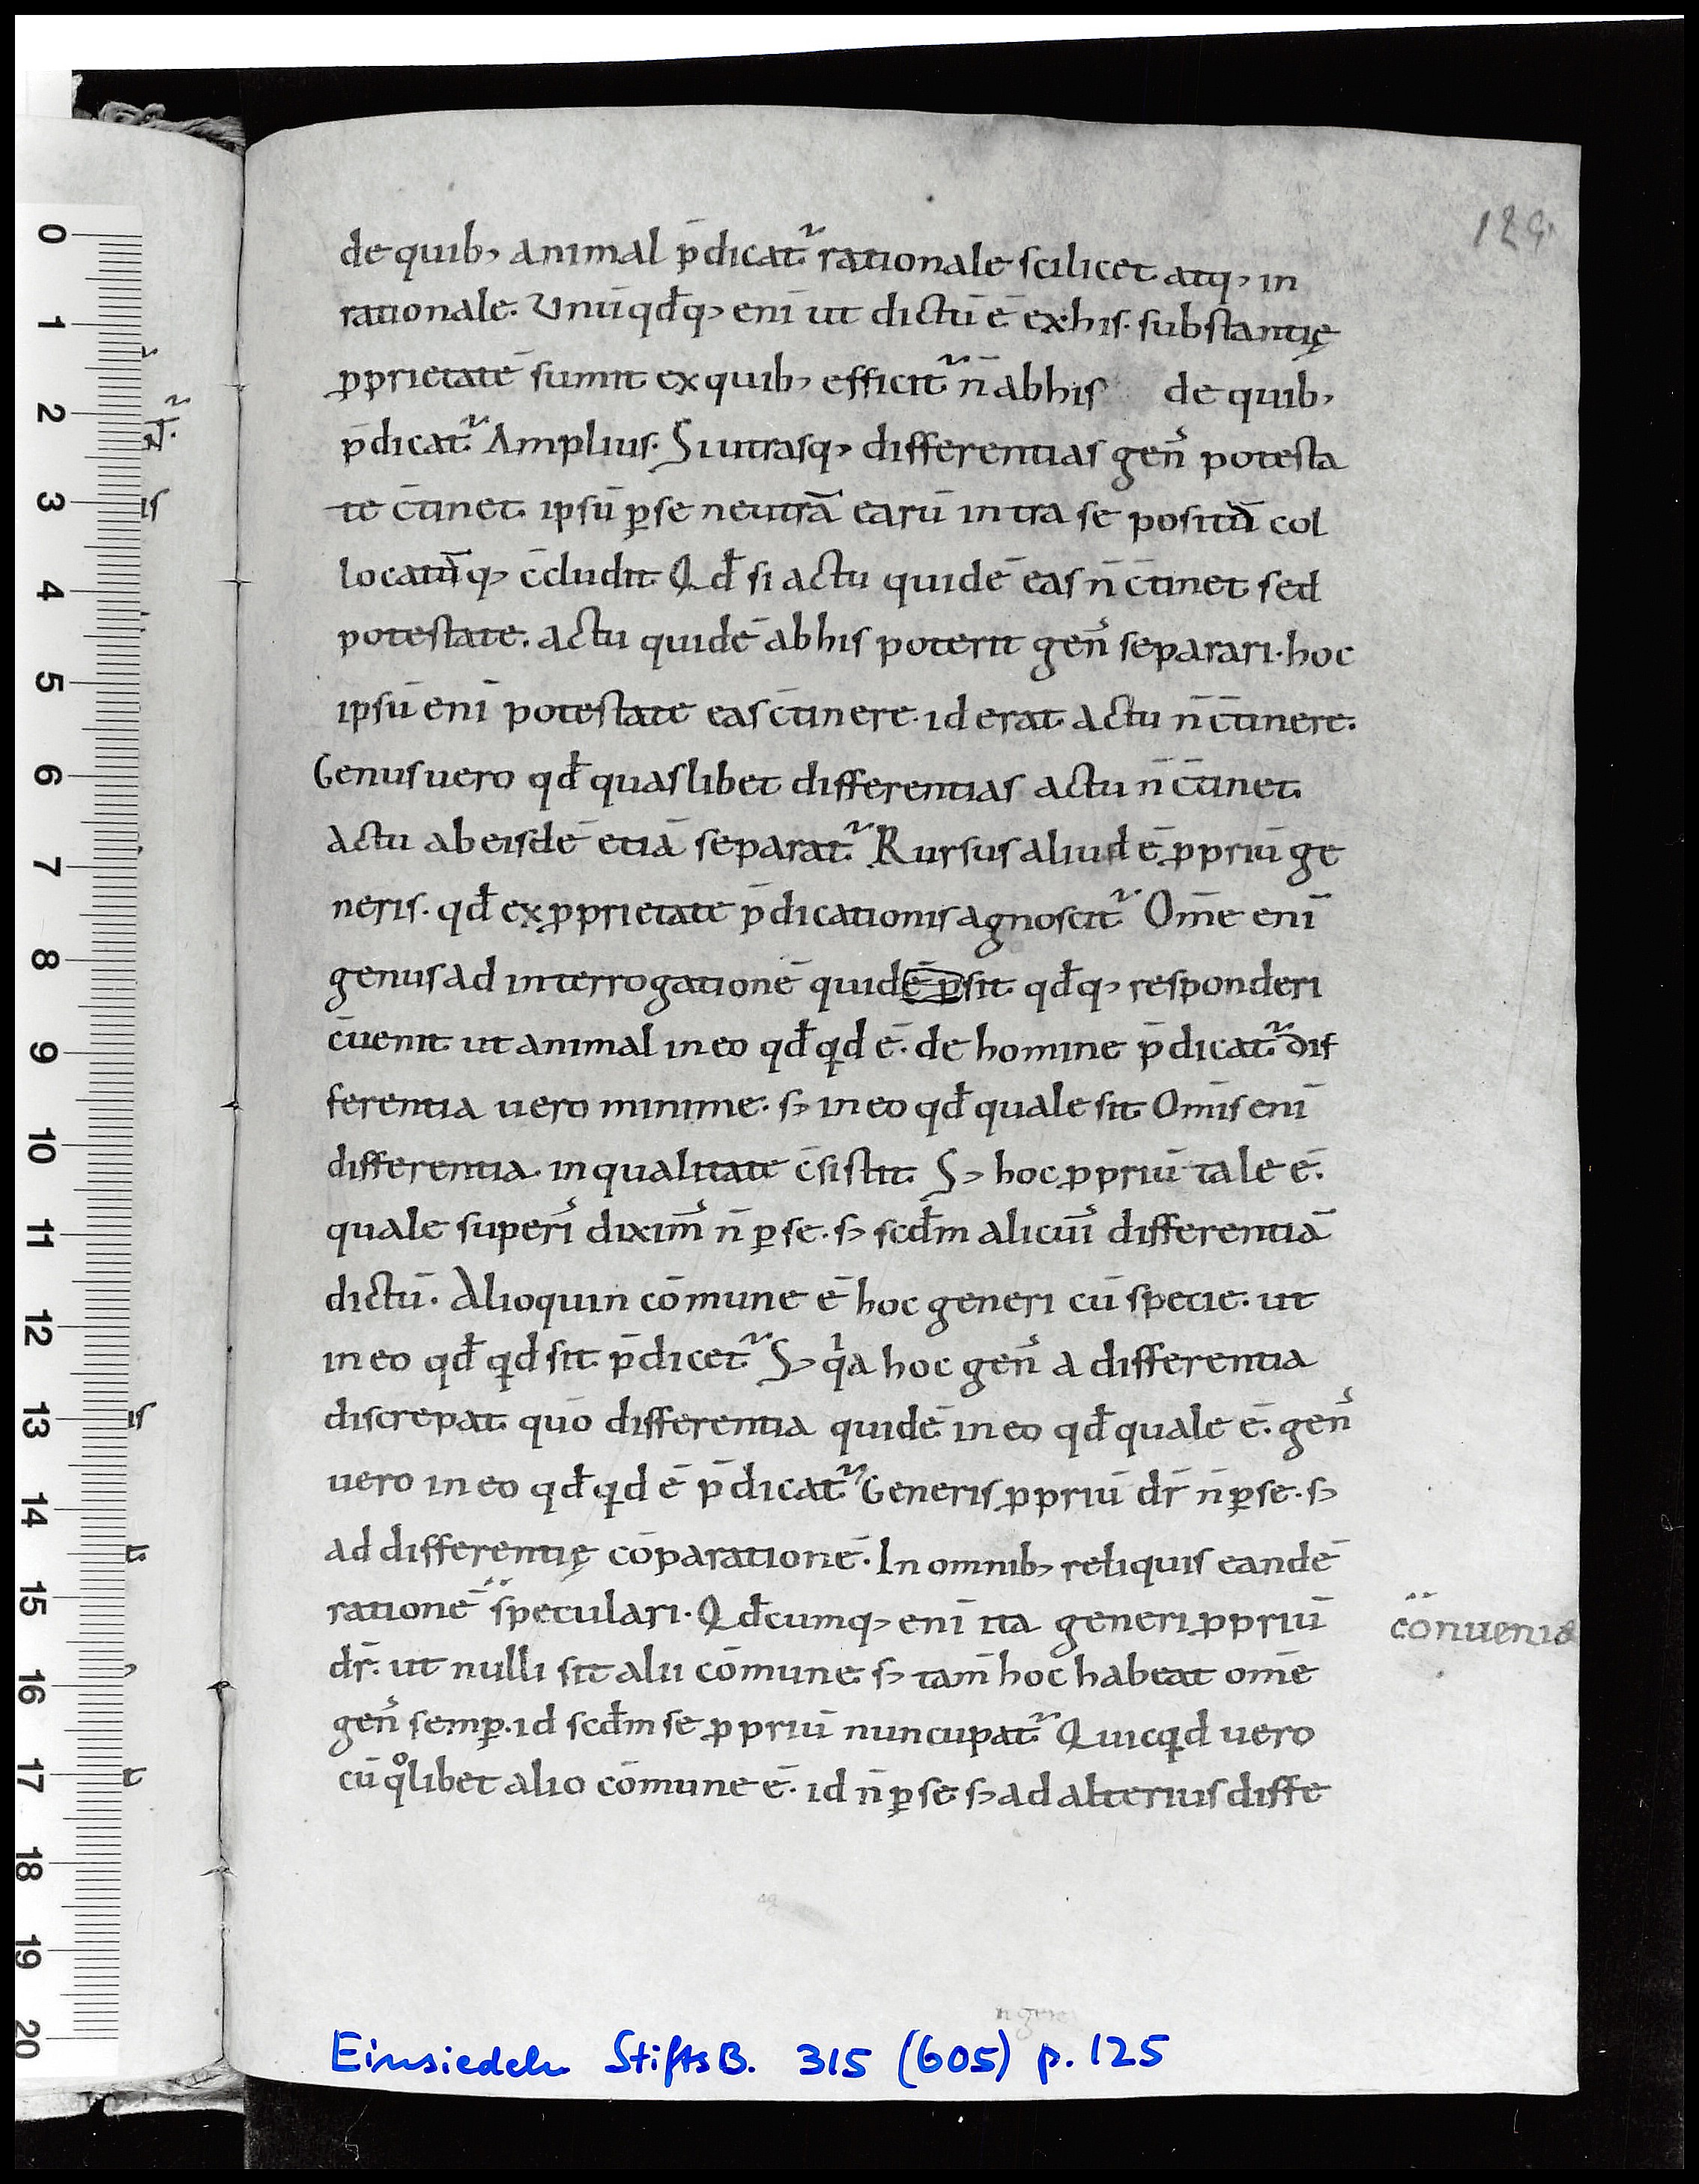 125
de quib; animal p̄dicat᷑ rationale scilicet atq; in
rationale. Vnū qđq; enī ut dictū ē ex his. substantię
ꝓprietatē sumit ex quib; efficit᷑ n̄ ab his de quib;
p̄dicat᷑ Amplius. Si utrasq; differentias gen̄ꝰ potesta
te c̄tinet ipsū ꝑ se neutrā earū intra se positū col
locatūq; c̄cludit Qđ si actu quidē eas n̄ c̄tinet sed
potestate. actu quidē ab his poterit gen̄ꝰ separari. hoc
ipsū enī potestate eas c̄tinere. id erat actu n̄ c̄tinere.
Genus uero qđ quaslibet differentias actu n̄ c̄tinet
actu ab eisdē etiā separat᷑ Rursus aliud ē ꝓpriū ge
neris. qđ ex ꝓprietate p̄dicationis agnoscit᷑ Om̄e enī
genus ad interrogationē quid ē p̄ sit qđq; responderi
c̄uenit ut animal in eo qđ qid ē. de homine p̄dicat᷑ dif
ferentia uero minime. s; in eo qđ quale sit Om̄is enī
differentia in qualitate c̄sistit S; hoc ꝓpriū tale ē.
quale superiꝰ diximꝰ n̄ ꝑ se. s; scđm alicuiꝰ differentiā
dictū. Alioquin cōmune ē hoc generi cū specie. ut
in eo qđ qid sit p̄dicet᷑ S; qⁱa hoc gen̄ꝰ a differentia
discrepat quō differentia quidē in eo qđ quale ē. gen̄ꝰ
uero in eo qđ qid ē p̄dicat᷑ Generis ꝓpriū dr̄ n̄ ꝑ se. s;
ad differentię cōparationē. In omnib; reliquis eandē
rationē speculari. Qđcumq; enī ita generi ꝓpriū
cōnuenia
dr̄. ut nulli sit alii cōmune s; tam̄ hoc habeat om̄e
gen̄ꝰ semꝑ. id scđm se ꝓpriū nuncupat᷑ Quicqid uero
cū qͦlibet alio cōmune ē. id n̄ ꝑ se s; ad alterius diffe
Einsiedeln StiftsB. 315 (605) p. 125
0
1
2
3
4
5
6
7
8
9
10
11
12
13
14
15
16
17
18
19
20